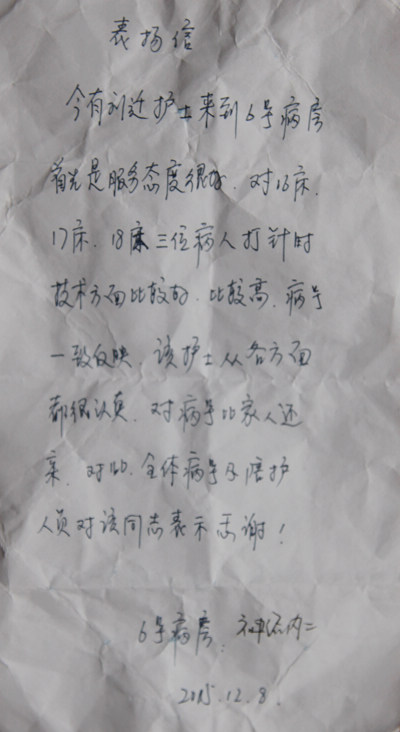 表扬信
今有刘迁护士来到6号病房
首先是服务态度很好.对16床.
17床.18床三位病人打针时
技术方面比较好.比较高.病号
一致反映.该护士从各方面
都很认真.对病号比家人还
亲.对此.全体病号及陪护
人员对该同志表示感谢!
6号病房.神经内二
2015.12.8.